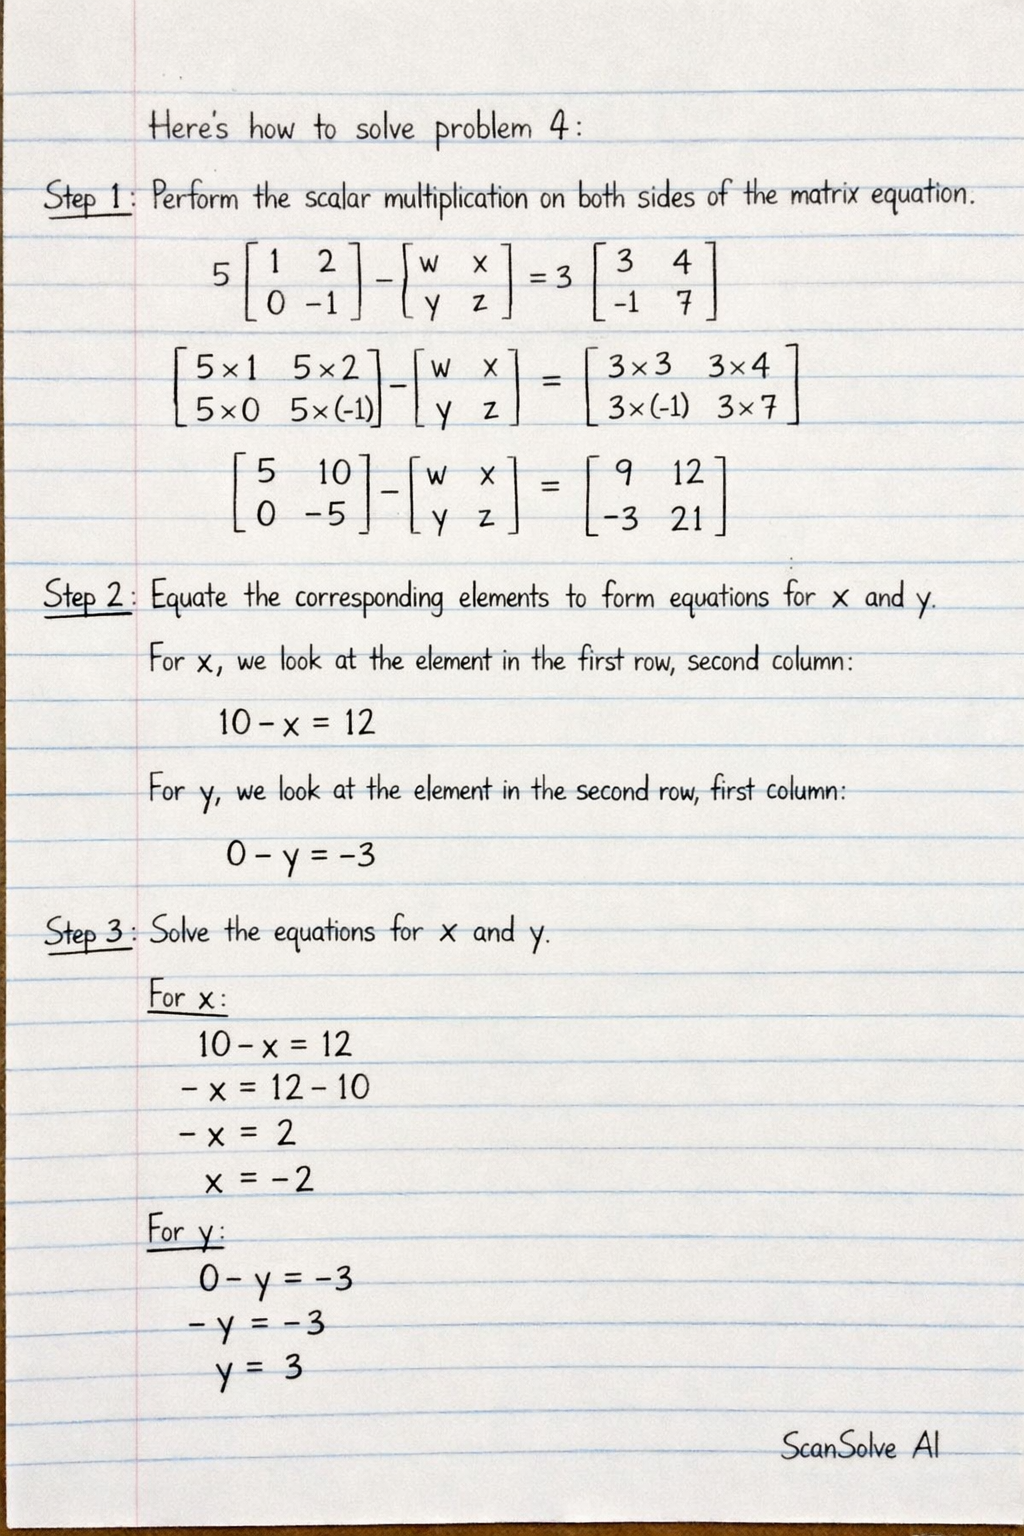 Here's how to solve problem 4:
Step 1: Perform the scalar multiplication on both sides of the matrix equation.
5 [1 2] − [w x] = 3 [3 4]
[0 −1] [y z] [-1 7]
[5×1 5×2] − [w x] = [3×3 3×4]
[5×0 5×(-1)] [y z] [3×(-1) 3×7]
[5 10] − [w x] = [9 12]
[0 −5] [y z] [−3 21]
Step 2: Equate the corresponding elements to form equations for x and y.
For x, we look at the element in the first row, second column:
10 − x = 12
For y, we look at the element in the second row, first column:
0 − y = −3
Step 3: Solve the equations for x and y.
For x:
10 − x = 12
− x = 12 − 10
− x = 2
x = −2
For y:
0 − y = −3
− y = −3
y = 3
ScanSolve AI